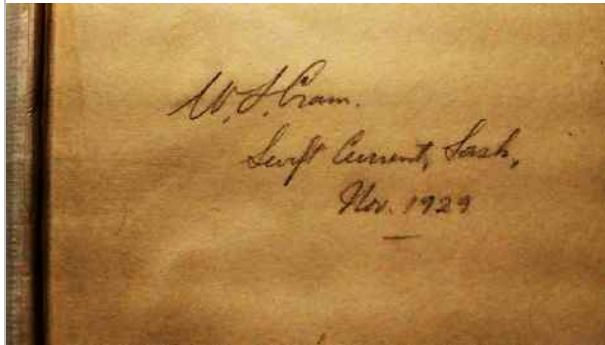 W. S. Cram.
Swift Current, Sask,
Nov. 1929